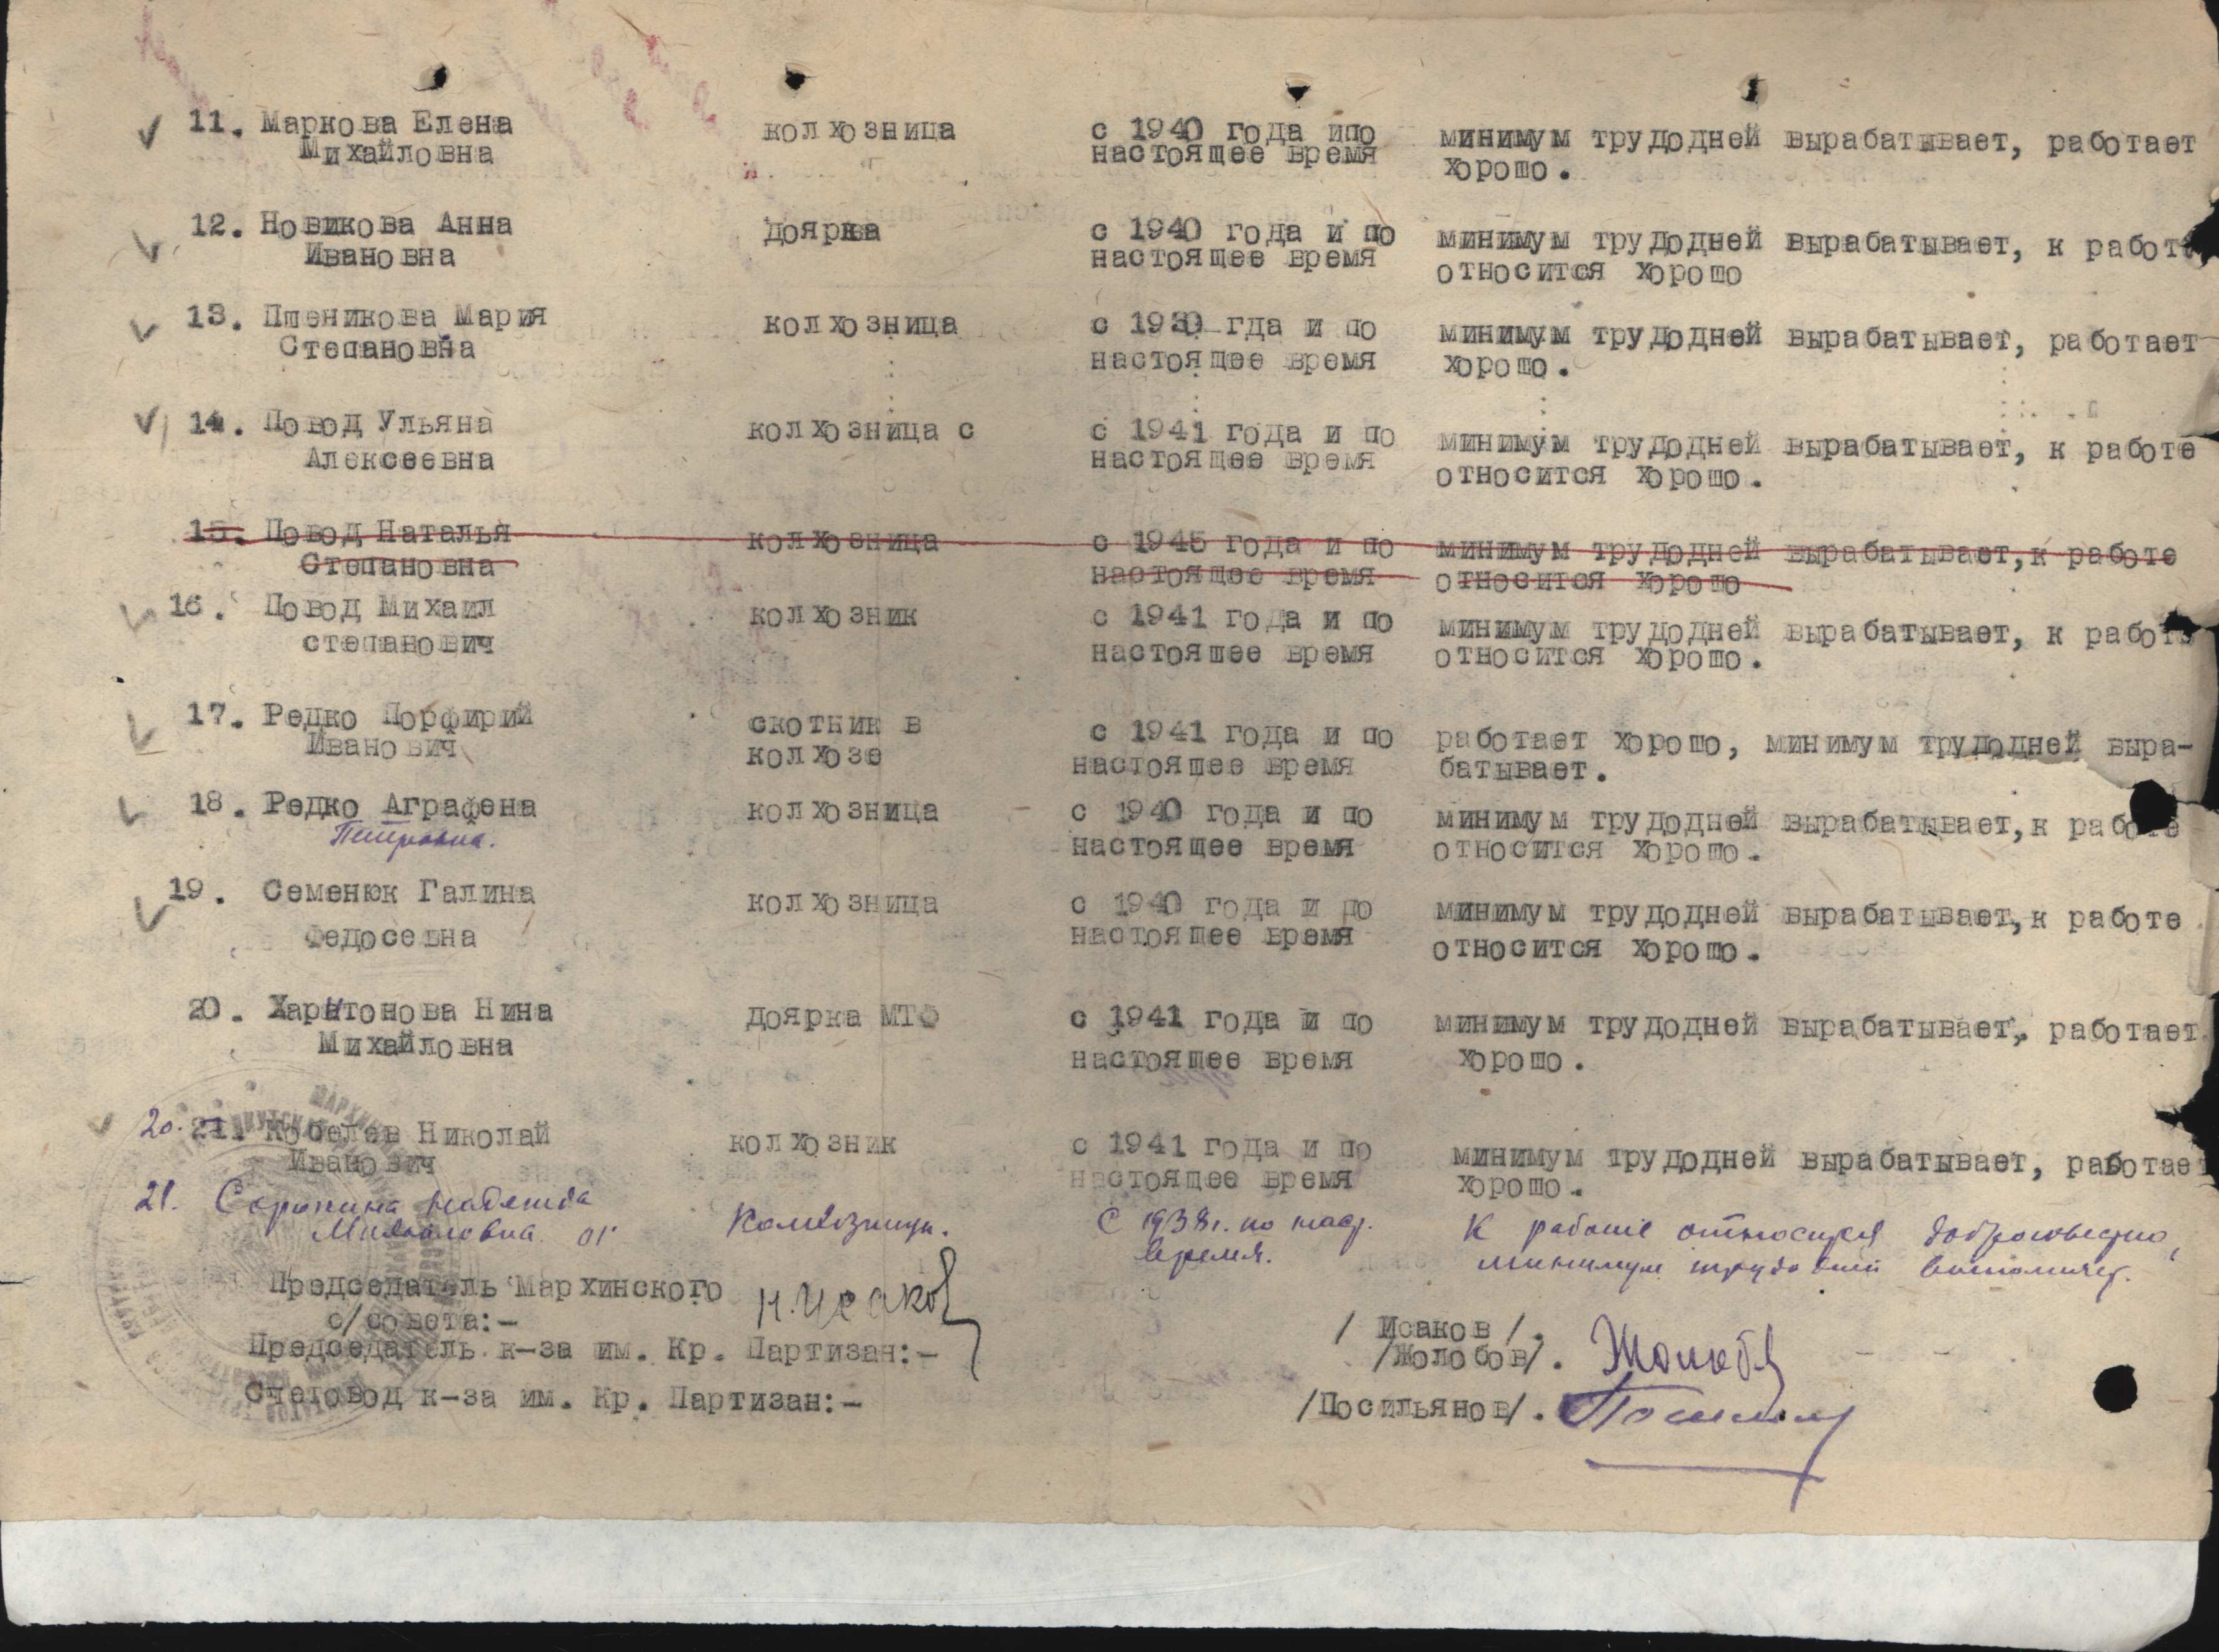 11. Маркова Елена колхозница с 1940 года ипо минимум трудодней вырабатывает, работает
Михайловна настоящее время хорошо.
12. Новикова Анна доярка с 1940 года и по минимум трудодней вырабатывает, к работе
Ивановна настоящее время относится хорошо
13. Пшеникова Мария колхозница с 1930 гда и по минимум трудодней вырабатывает, работает
Степановна настоящее время хорошо.
14. Повод Ульяна колхозница с с 1941 года и по минимум трудодней вырабатывает, к работе
Алексеевна настоящее время относится хорошо.
15. Повод Наталья колхозница с 1945 года и по минимум трудодней вырабатывает,к работе
Степановна настоящее время относится хорошо
16. Повод Михаил колхозник с 1941 года и по минимум трудодней вырабатывает, к работе
степанович настоящее время относится хорошо.
17. Редко Порфирий скотник в с 1941 года и по работает хорошо, минимум трудодней выра-
Иванович колхозе настоящее время батывает.
18. Редко Аграфена колхозница с 1940 года и по минимум трудодней вырабатывает,к работе
Петровна. настоящее время относится хорошо.
19. Семенюк Галина колхозница с 1940 года и по минимум трудодней вырабатывает,к работе
Федосевна настоящее время относится хорошо.
20. Харитонова Нина доярка МТФ с 1941 года и по минимум трудодней вырабатывает, работает
Михайловна настоящее время хорошо.
20. 21. Кобелев Николай колхозник с 1941 года и по минимум трудодней вырабатывает, работает
Иванович настоящее время хорошо.
21. Сорокина Надежда Колхозница. С 1938 г. по наст. К работе относится добросовестно,
Михайловна время. минимум трудодней выполняет.
Председатель Мархинского Н.Исаков
с/совета:- / Исаков /.
Председатель к-за им. Кр. Партизан:- /Жолобов/. Жолоб
Счетовод к-за им. Кр. Партизан:- /Посильянов/.